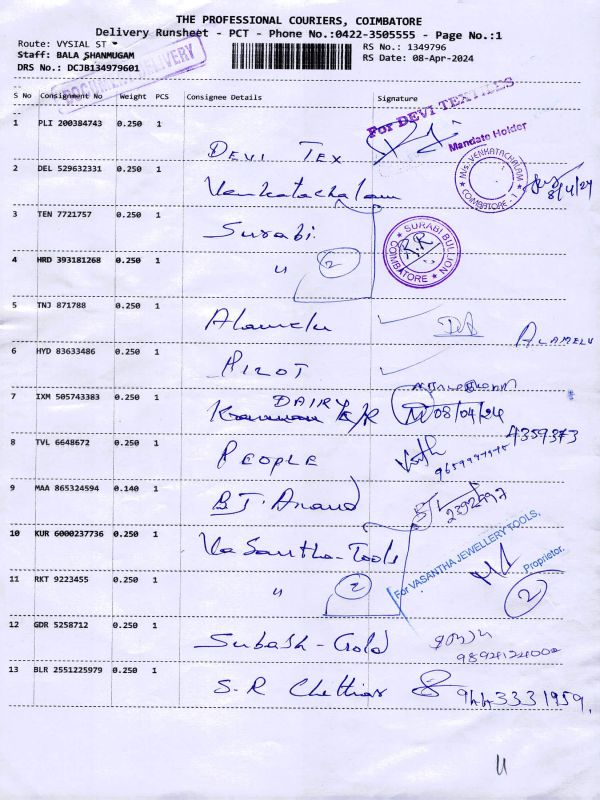 THE PROFESSIONAL COURIERS, COIMBATORE
Delivery Runsheet - PCT - Phone No.:0422-3505555 - Page No.:1
Route: VYSIAL ST
RS No.: 1349796
Staff: BALA SHANMUGAM
RS Date: 08-Apr-2024
DRS No.: DCJB134979601
DOCUMENT DELIVERY
S No Consignment No Weight PCS Consignee Details Signature
For DEVI TEXTILES
Mandate Holder
1 PLI 200384743 0.250 1 DEVI TEX
2 DEL 529632331 0.250 1 Venkatachalam
M/s. VENKATACHALAM COIMBATORE
8/4/24
3 TEN 7721757 0.250 1 Surabi
SURABI BULLION COIMBATORE
R.R
4 HRD 393181268 0.250 1 " 2
5 TNJ 871788 0.250 1 Alamelu
ALAMELU
6 HYD 83633486 0.250 1 PILOT
7 IXM 505743383 0.250 1 DAIRY
08/04/24
4359373
8 TVL 6648672 0.250 1 PEOPLE
9 MAA 865324594 0.140 1 B.J. Anand
2392497
10 KUR 6000237736 0.250 1 Vasantha-Tools
For VASANTHA JEWELLERY TOOLS,
Proprietor.
11 RKT 9223455 0.250 1 " 2
2
12 GDR 5258712 0.250 1 Subash-Gold
13 BLR 2551225979 0.250 1 S.R Chettiar
9443331959,